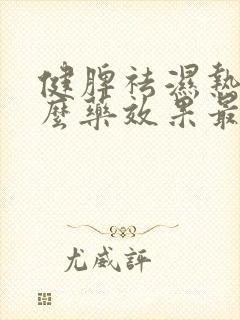 健脾祛濕熱
麼藥效果最
尤威評